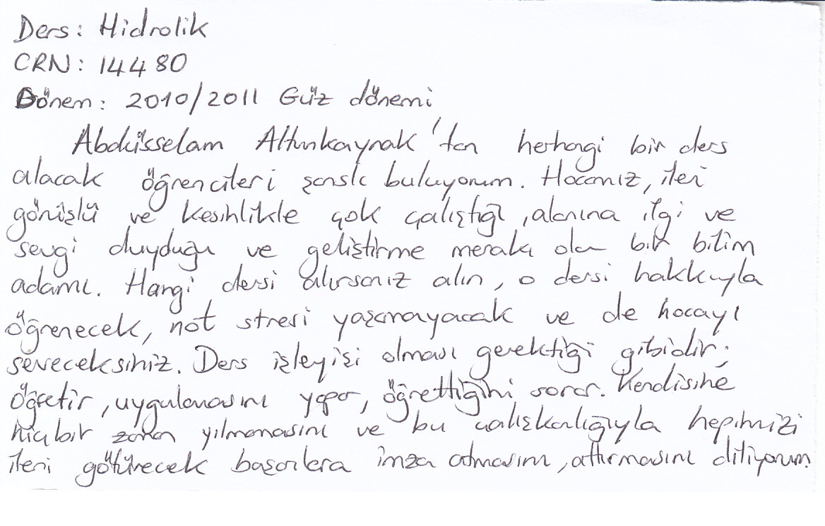 Ders: Hidrolik
CRN: 14480
Dönem: 2010/2011 Güz dönemi
Abdüsselam Altunkaynak'tan herhangi bir ders
alacak öğrencileri şanslı buluyorum. Hocamız, ileri
görüşlü ve kesinlikle çok çalıştığı, alanına ilgi ve
sevgi duyduğu ve geliştirme merakı olan bir bilim
adamı. Hangi dersi alırsanız alın, o dersi hakkıyla
öğrenecek, not stresi yaşamayacak ve de hocayı
seveceksiniz. Ders işleyişi olması gerektiği gibidir;
öğretir, uygulamasını yapar, öğrettiğini sorar. Kendisine
hiçbir zaman yılmamasını ve bu çalışkanlığıyla hepimizi
ileri götürecek başarılara imza atmasını, attırmasını diliyorum